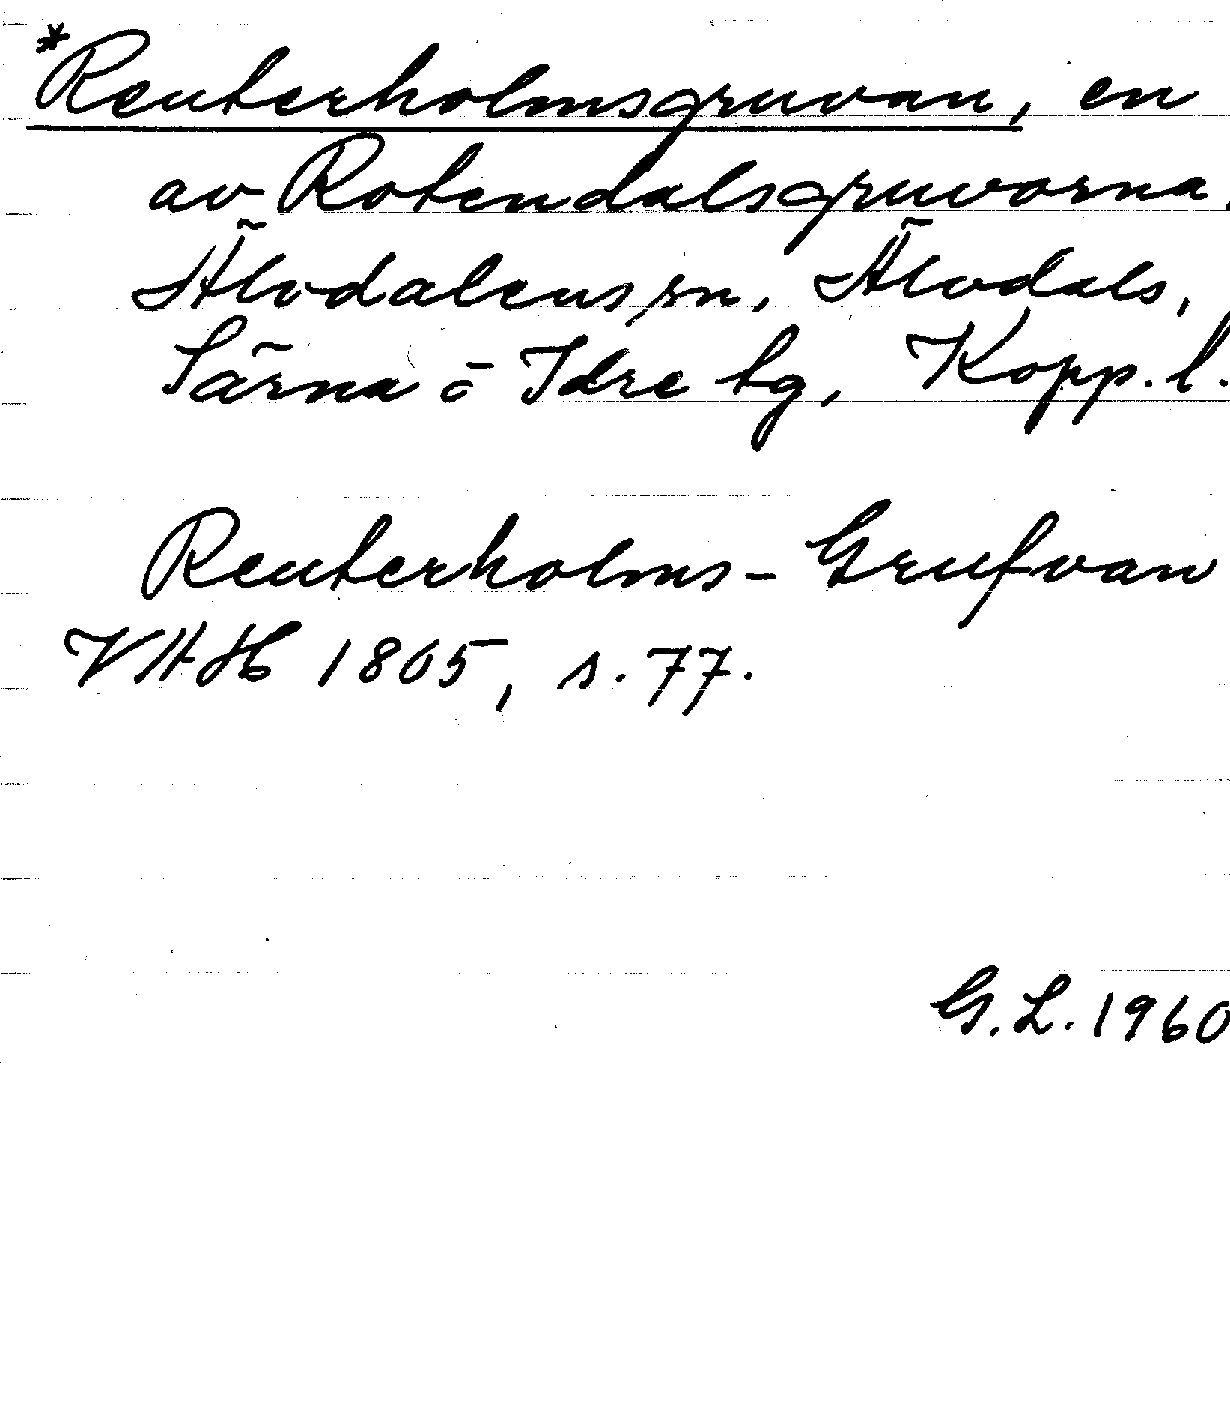 *Reuterholmsgruvan, en
av Rotendalsgruvorna,
Älvdalens sn, Älvdals,
Särna o Idre tg, Kopp. l.
Reuterholms-Grufvan
VAH 1805, s. 77.
G. L. 1960